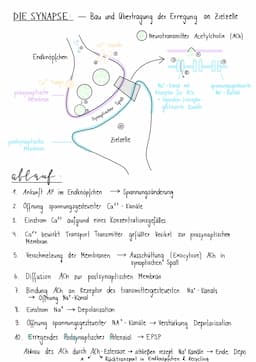 DIE SYNAPSE — Bau und Übertragung der Erregung an Zielzelle
Neurotransmitter Acetylcholin (ACh)
Endknöpfchen
präsynaptische
Membran
Synaptischer Spalt
postsynaptische
Membran
Zielzelle
Ablauf
1. Ankunft AP im Endknöpfchen → Spannungsänderung
2. Öffnung spannungsgesteuerter Ca²⁺ - Kanäle
3. Einstrom Ca²⁺ aufgrund eines Konzentrationsgefälles
4. Ca²⁺ bewirkt Transport Transmitter gefüllter Vesikel zur präsynaptischen
Membran
5. Verschmelzung der Membranen → Ausschüttung (Exocytose) ACh in
synaptischen Spalt
6. Diffusion ACh zur postsynaptischen Membran
7. Bindung ACh an Rezeptor des transmittergesteuerten Na⁺ - Kanals
→ Öffnung Na⁺-Kanal
8. Einstrom Na⁺ → Depolarisation
9. Öffnung spannungsgesteuerter Na⁺ - Kanäle → Verstärkung Depolarisation
10. Erregendes Postsynaptischer Potenzial → EPSP
Abbau des ACh durch ACh-Esterase → schließen rezept. Na⁺ Kanäle → Ende Depo